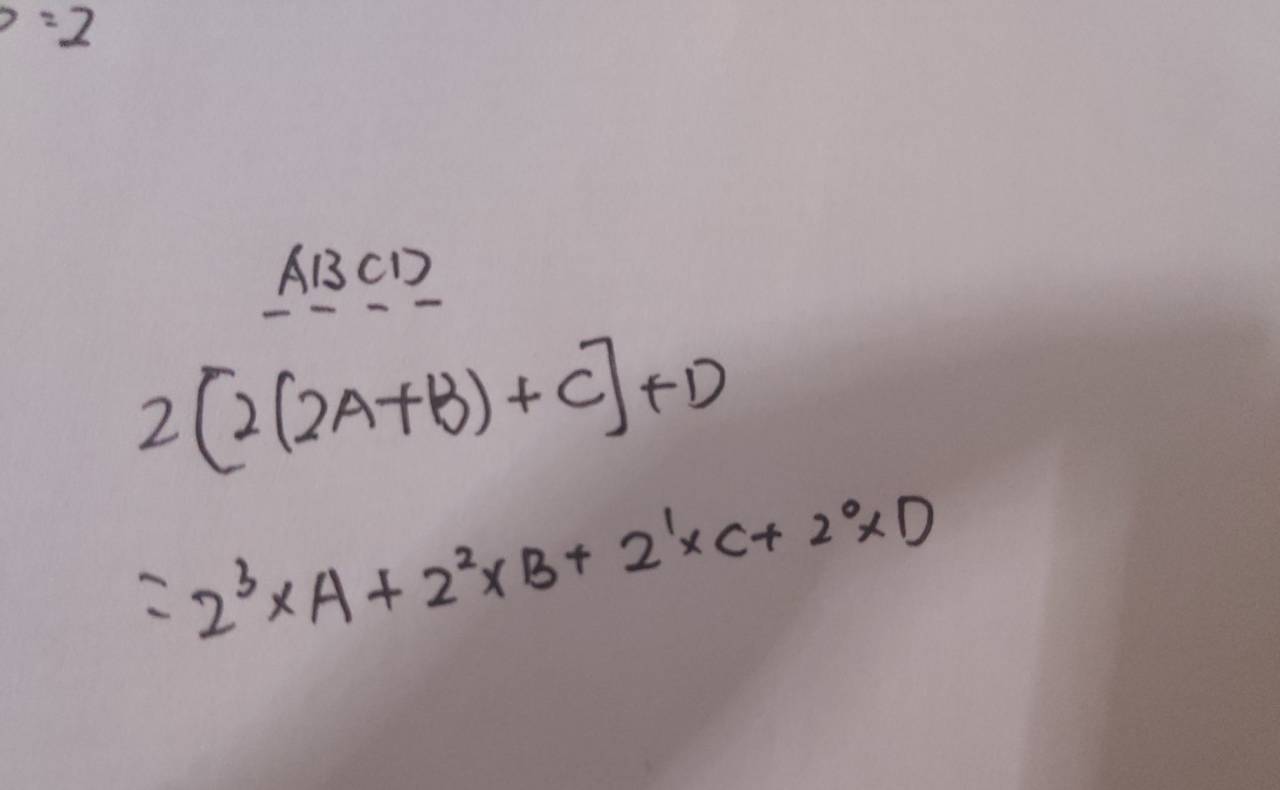 =2
ABCD
2[2(2A+B)+C]+D
=2³×A+2²×B+2¹×C+2⁰×D